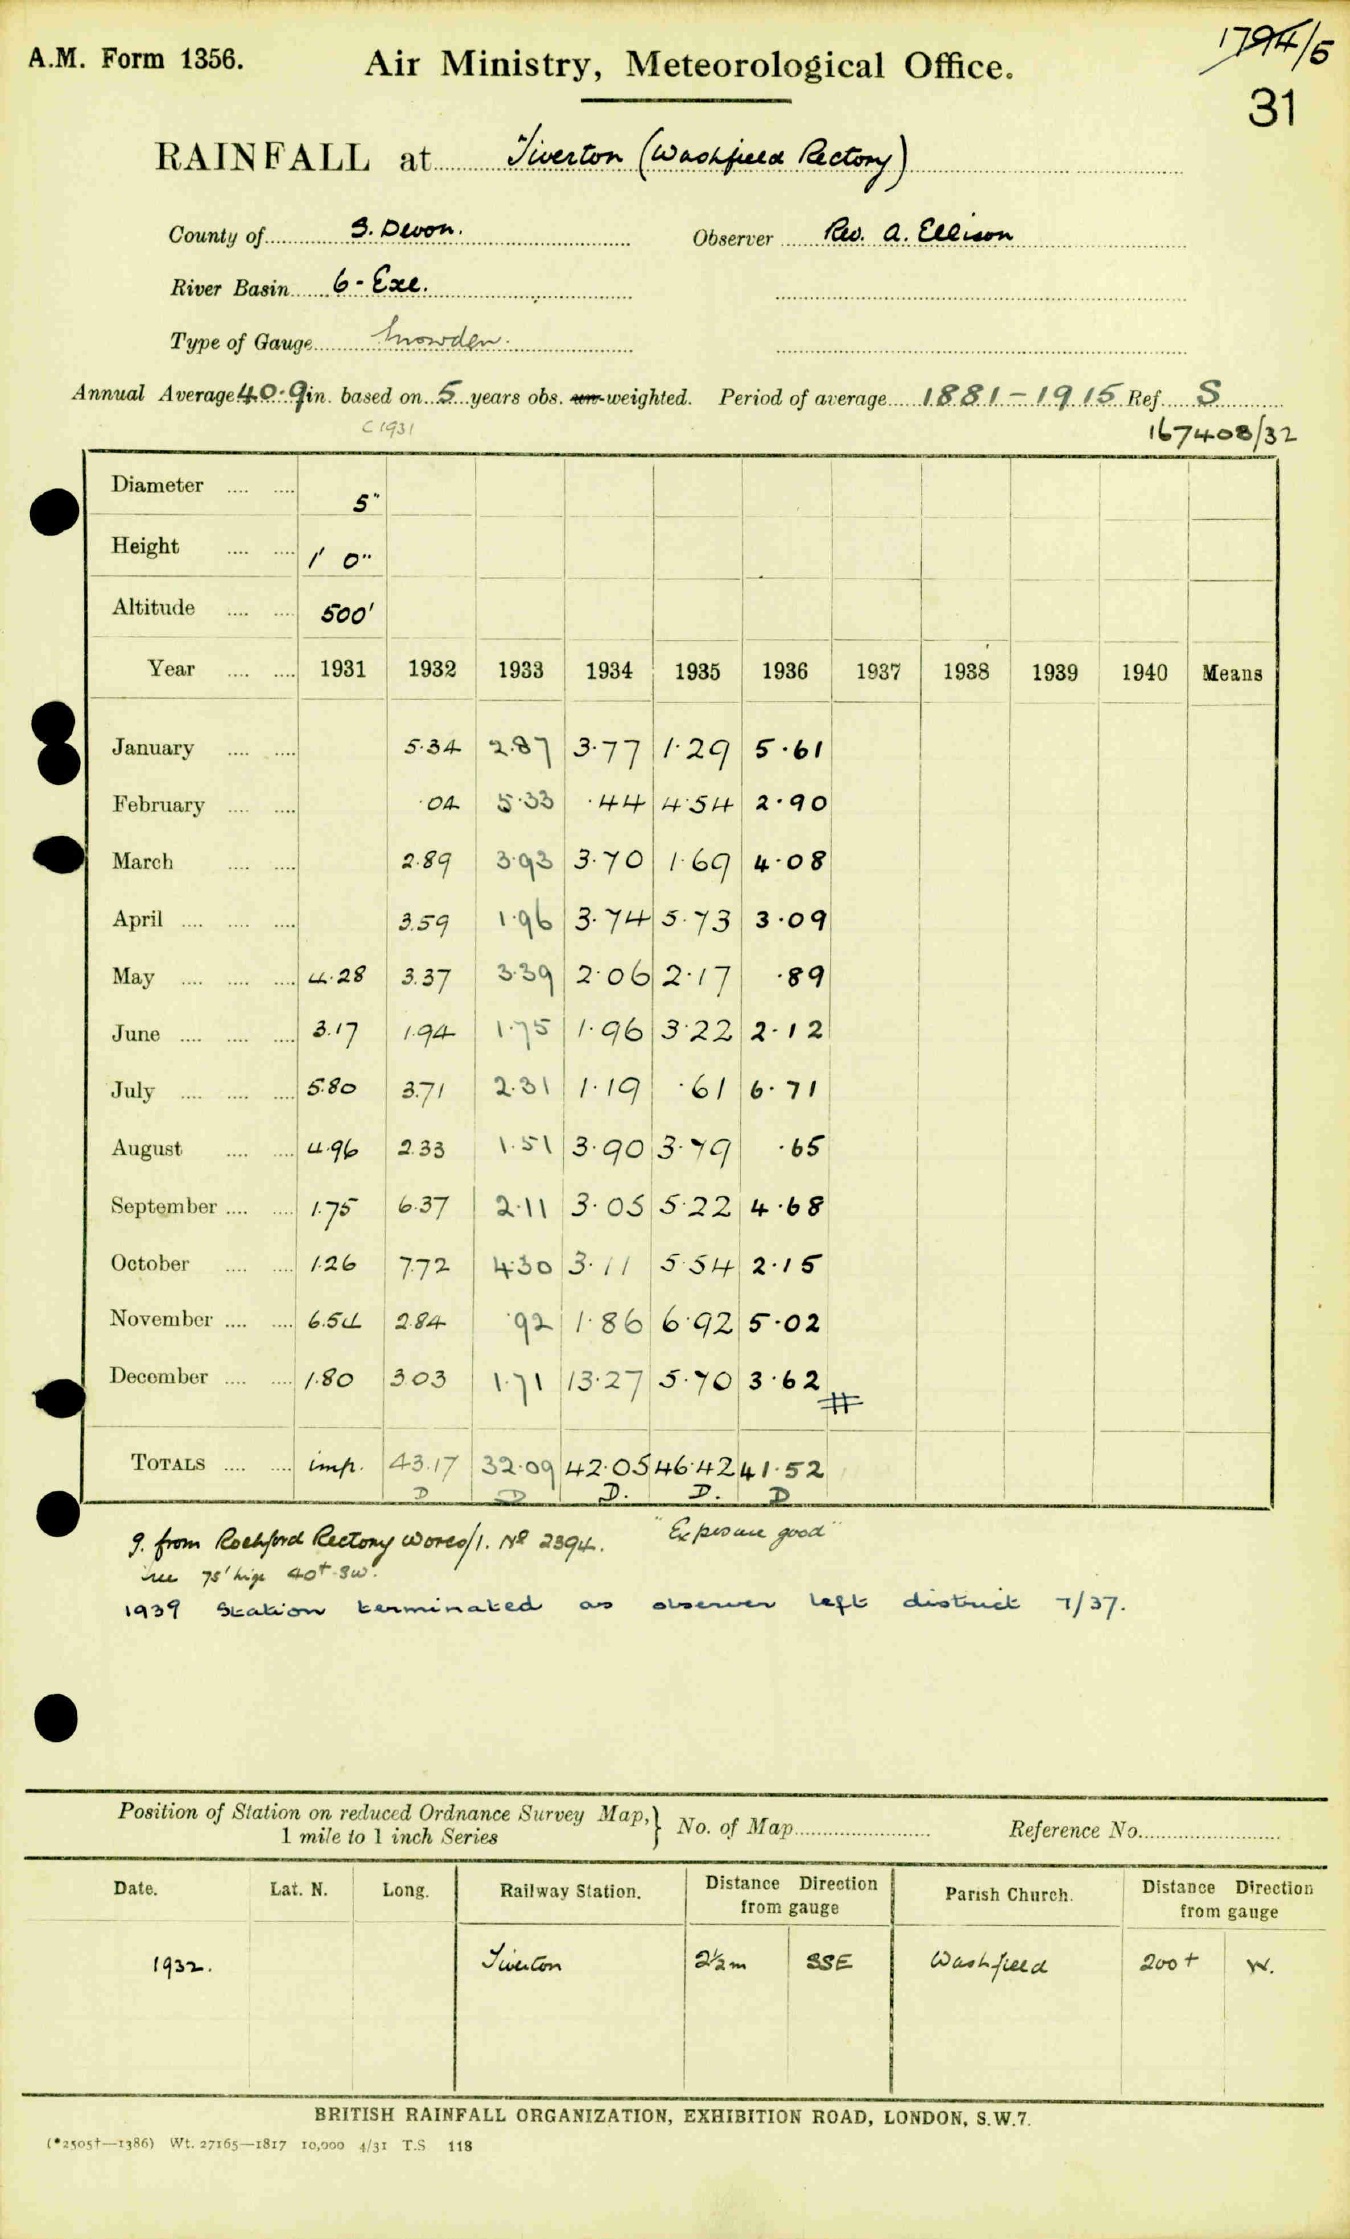 A.M. Form 1356.
Air Ministry, Meteorological Office.
1794/5
31
RAINFALL at Tiverton (Washfield Rectory)
County of S. Devon. Observer Rev. A. Ellison
River Basin 6 - Exe.
Type of Gauge Snowdon.
Annual Average 40.9 in. based on 5 years obs. un-weighted. Period of average 1881-1915 Ref. S
C 1931
167408/32
Diameter .... .... 5"
Height .... .... 1' 0"
Altitude .... .... 500'
Year .... .... 1931 1932 1933 1934 1935 1936 1937 1938 1939 1940 Means
January .... .... 5.34 2.87 3.77 1.29 5.61
February .... .... .04 5.33 .44 4.54 2.90
March .... .... 2.89 3.93 3.70 1.69 4.08
April .... .... .... 3.59 1.96 3.74 5.73 3.09
May .... .... .... 4.28 3.37 3.39 2.06 2.17 .89
June .... .... .... 3.17 1.94 1.75 1.96 3.22 2.12
July .... .... .... 5.80 3.71 2.31 1.19 .61 6.71
August .... .... 4.96 2.33 1.51 3.90 3.79 .65
September .... .... 1.75 6.37 2.11 3.05 5.22 4.68
October .... .... 1.26 7.72 4.30 3.11 5.54 2.15
November .... .... 6.54 2.84 .92 1.86 6.92 5.02
December .... .... 1.80 3.03 1.71 13.27 5.70 3.62
TOTALS .... .... imp. 43.17 32.09 42.05 46.42 41.52
D D D. D. D
g. from Rochford Rectory Worcs/1. No 2394. "Exposure good"
Tree 75' high 40+ SW.
1939 Station terminated as observer left district 7/37.
Position of Station on reduced Ordnance Survey Map, } No. of Map Reference No.
1 mile to 1 inch Series
Date. Lat. N. Long. Railway Station. Distance Direction from gauge Parish Church. Distance Direction from gauge
1932. Tiverton 2½m SSE Washfield 200+ W.
BRITISH RAINFALL ORGANIZATION, EXHIBITION ROAD, LONDON, S.W.7.
(*2505†—1386) Wt. 27165—1817 10,000 4/31 T.S 118